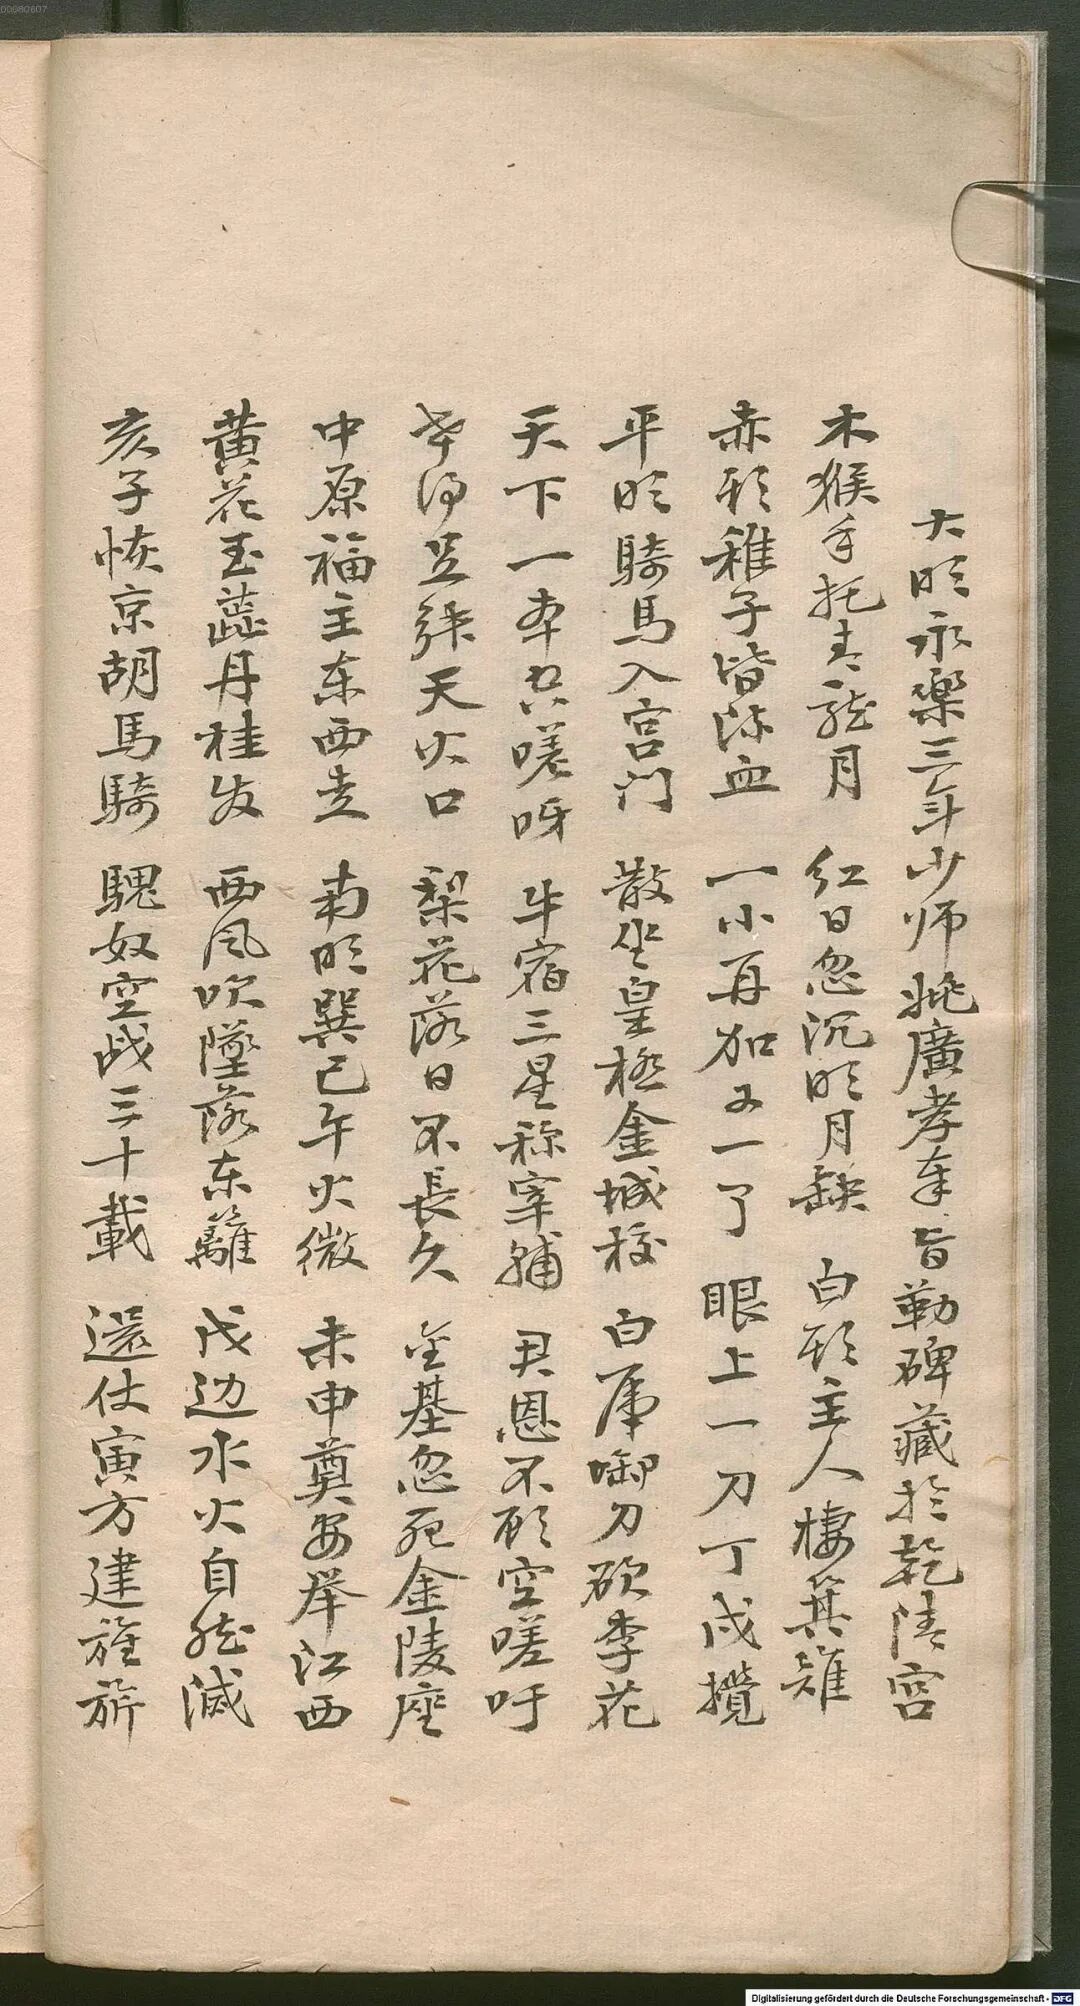 00080607
大明永樂三年少师姚廣孝奉旨勒碑藏於乾清宫
木猴手托青龍月 红日忽沉明月缺 白頭主人棲箕雉
赤頭稚子皆流血 一小再加又一了 眼上一刀丁戊攪
平明騎馬入宫门 散坐皇極金城授 白虎啣刀砍李花
天下一本共嗟呀 牛宿三星称宰辅 君恩不顧空嗟吁
天火口 梨花落日不長久 金基忽死金陵座
中原福主东西走 南明巽巳午火微 未申奠安举江西
黄花玉蕊丹桂发 西风吹墜落东籬 戊边水火自然滅
亥子恢京胡馬騎 騩奴空战三十載 還仗寅方建旌旂
Digitalisierung gefördert durch die Deutsche Forschungsgemeinschaft - DFG